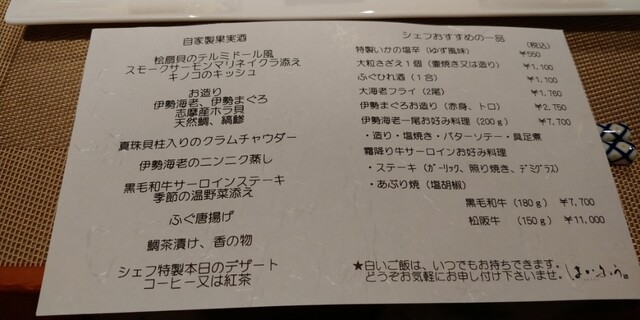 自家製果実酒
桧扇貝のテルミドール風
スモークサーモンマリネイクラ添え
キノコのキッシュ
お造り
伊勢海老、伊勢まぐろ
志摩産ホラ貝
天然鯛、縞鯵
真珠貝柱入りのクラムチャウダー
伊勢海老のニンニク蒸し
黒毛和牛サーロインステーキ
季節の温野菜添え
ふぐ唐揚げ
鯛茶漬け、香の物
シェフ特製本日のデザート
コーヒー又は紅茶
シェフおすすめの一品
(税込)
特製いかの塩辛(ゆず風味) ¥550
大粒さざえ1個(壷焼き又は造り) ¥1,100
ふぐひれ酒(1合) ¥1,100
大海老フライ(2尾) ¥1,760
伊勢まぐろお造り(赤身、トロ) ¥2,750
伊勢海老一尾お好み料理(200g) ¥7,700
・造り・塩焼き・バターソテー・具足煮
霜降り牛サーロインお好み料理
・ステーキ(ガーリック、照り焼き、デミグラス)
・あぶり焼(塩胡椒)
黒毛和牛(180g) ¥7,700
松阪牛(150g) ¥11,000
★白いご飯は、いつでもお持ちできます。
どうぞお気軽にお申し付け下さいませ。